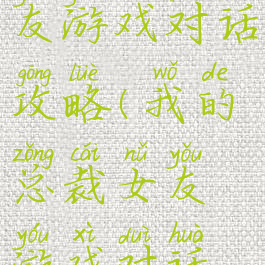 友游戏对话
gōng lüè wǒ de
攻略(我的
zǒng cái nǚ yǒu
总裁女友
yóu xì duì huà
游戏对话